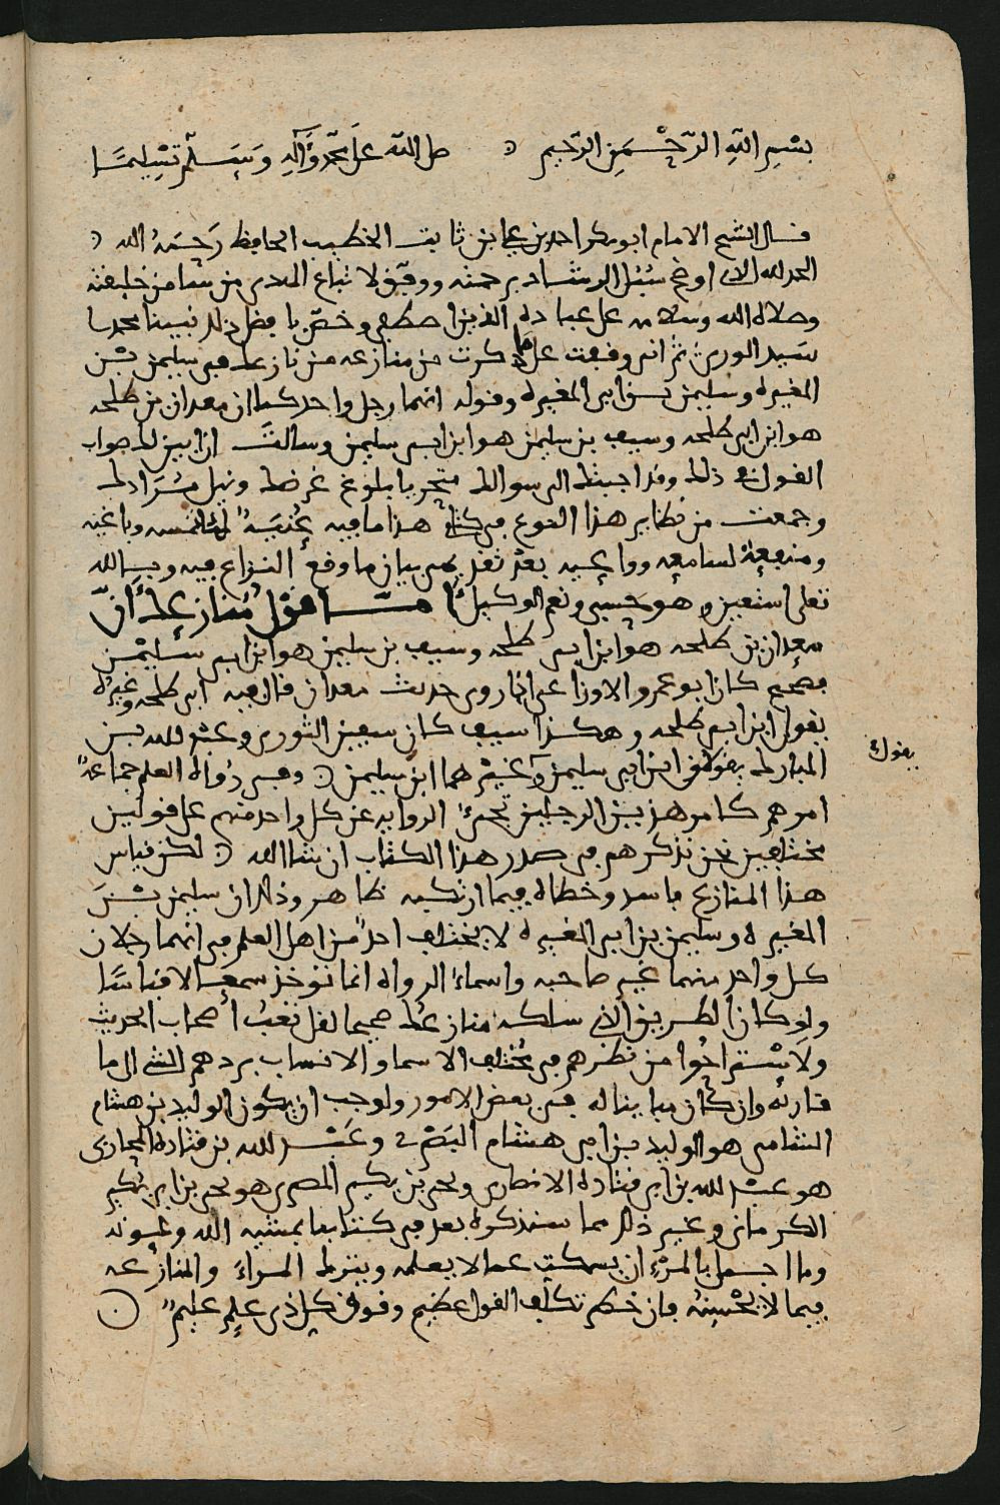 بسم الله الرحمن الرحيم صلى الله على محمد وآله وسلم تسليما
قال الشيخ الامام ابو بكر احمد بن علي بن ثابت الخطيب الحافظ رحمه الله
الحمد لله الذي اوضح سبل الرشاد برحمته ووفق لاتباع الهدى من شا من خليقته
وصلاة الله وسلامه على عباده الذين اصطفى وخص بافضل ذلك نبينا محمدا
سيد الورى ثم اني وقفت على ما ذكرت من منازعة من نازعك في سليمن بن
المغيرة وسليمن بن ابي المغيرة وقوله انهما رجل واحد كما ان معدان بن طلحة
هو ابن ابي طلحة وسيف بن سليمن هو ابن ابي سليمن وسالت ان ابين لك صواب
القول في ذلك وقد اجبتك الى سوالك متحريا بلوغ غرضك ونيل مرادك
وجمعت من نظاير هذا النوع في كتابي هذا ما فيه غنية لملتمسه وباغيه
ومنفعة لسامعه وواعيه بعد تقديمي بيان ما وقع النزاع فيه وبالله
تعلى استعين وهو حسبي ونعم الوكيل اما قول منازعك ان
معدان بن طلحة هو ابن ابي طلحة وسيف بن سليمن هو ابن ابي سليمن
فصحيح كان ابو عمرو الاوزاعي اذا روى حديث معدان قال فيه ابن طلحة وغيره
يقول ابن ابي طلحة وهكذا سيف كان سفين الثوري وعبد الله بن
المبارك يقولان ابن ابي سليمن وغيرهما ابن سليمن وفي رواة العلم جماعة
يقول
امرهم كامر هذين الرجلين تجيء الرواية عن كل واحد منهم على قولين
مختلفين نحن نذكرهم في صدر هذا الكتاب ان شا الله لكن قياس
هذا المنازع فاسد وخطاه فيما ارتكبه ظاهر وذلك ان سليمن بن
المغيرة وسليمن بن ابي المغيرة لا يختلف احد من اهل العلم في انهما رجلان
كل واحد منهما غير صاحبه واسماء الرواة انما توخذ سمعا لا قياسا
ولو كان الطريق الذي سلكه منازعك صحيحا لقل تعب أصحاب الحديث
ولاستراحوا من نظرهم في مختلف الاسما والانساب بردهم الشي الى ما
قاربه وان كان مباينا له في بعض الامور ولوجب ان يكون الوليد بن هشام
الشامي هو الوليد بن ابي هشام البصري وعبد الله بن قتادة المحاربي
هو عبد الله بن ابي قتادة الانصاري ويحيى بن بكير المصري هو يحيى بن ابي بكير
الكرماني وغير ذلك مما سنذكره بعد في كتابنا بمشية الله وعونه
وما اجمل بالمرء ان يسكت عما لا يعلمه ويترك المراء والمنازعة
فيما لا يحسنه فان خطر تكلف القول عظيم وفوق كل ذي علم عليم